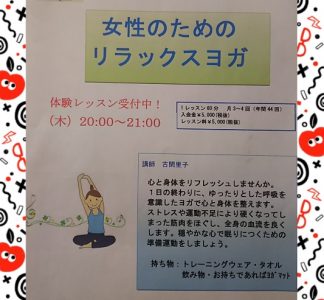 女性のための
リラックスヨガ
体験レッスン受付中！
(木) 20:00～21:00
1レッスン60分　月3～4回（年間44回）
入会金￥5,000(税抜)
レッスン料￥5,000(税抜)
講師　古関里子
心と身体をリフレッシュしませんか。
1日の終わりに、ゆったりとした呼吸を
意識したヨガで心と身体を整えます。
ストレスや運動不足により硬くなってしまっ
た筋肉をほぐし、全身の血流を良く
します。穏やかな心で眠りにつくための
準備運動をしましょう。
持ち物：トレーニングウェア・タオル
飲み物・お持ちであればﾖｶﾞﾏｯﾄ